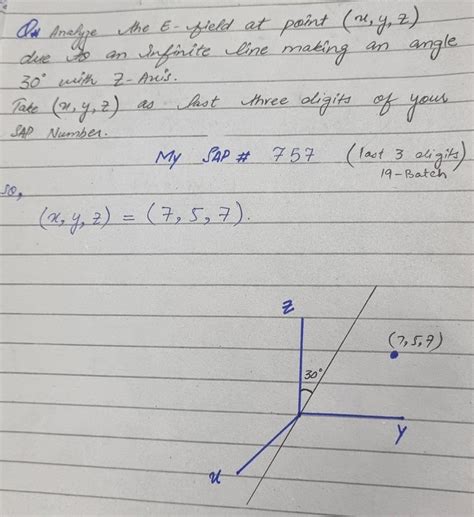 Q:- Analyze the E-field at point (x, y, z)
due to an infinite line making an angle
30° with Z-Axis.
Take (x, y, z) as last three digits of your
SAP Number.
My SAP # 757 (last 3 digits)
19-Batch
so,
(x, y, z) = (7, 5, 7).
Z
(7, 5, 7)
30°
Y
x